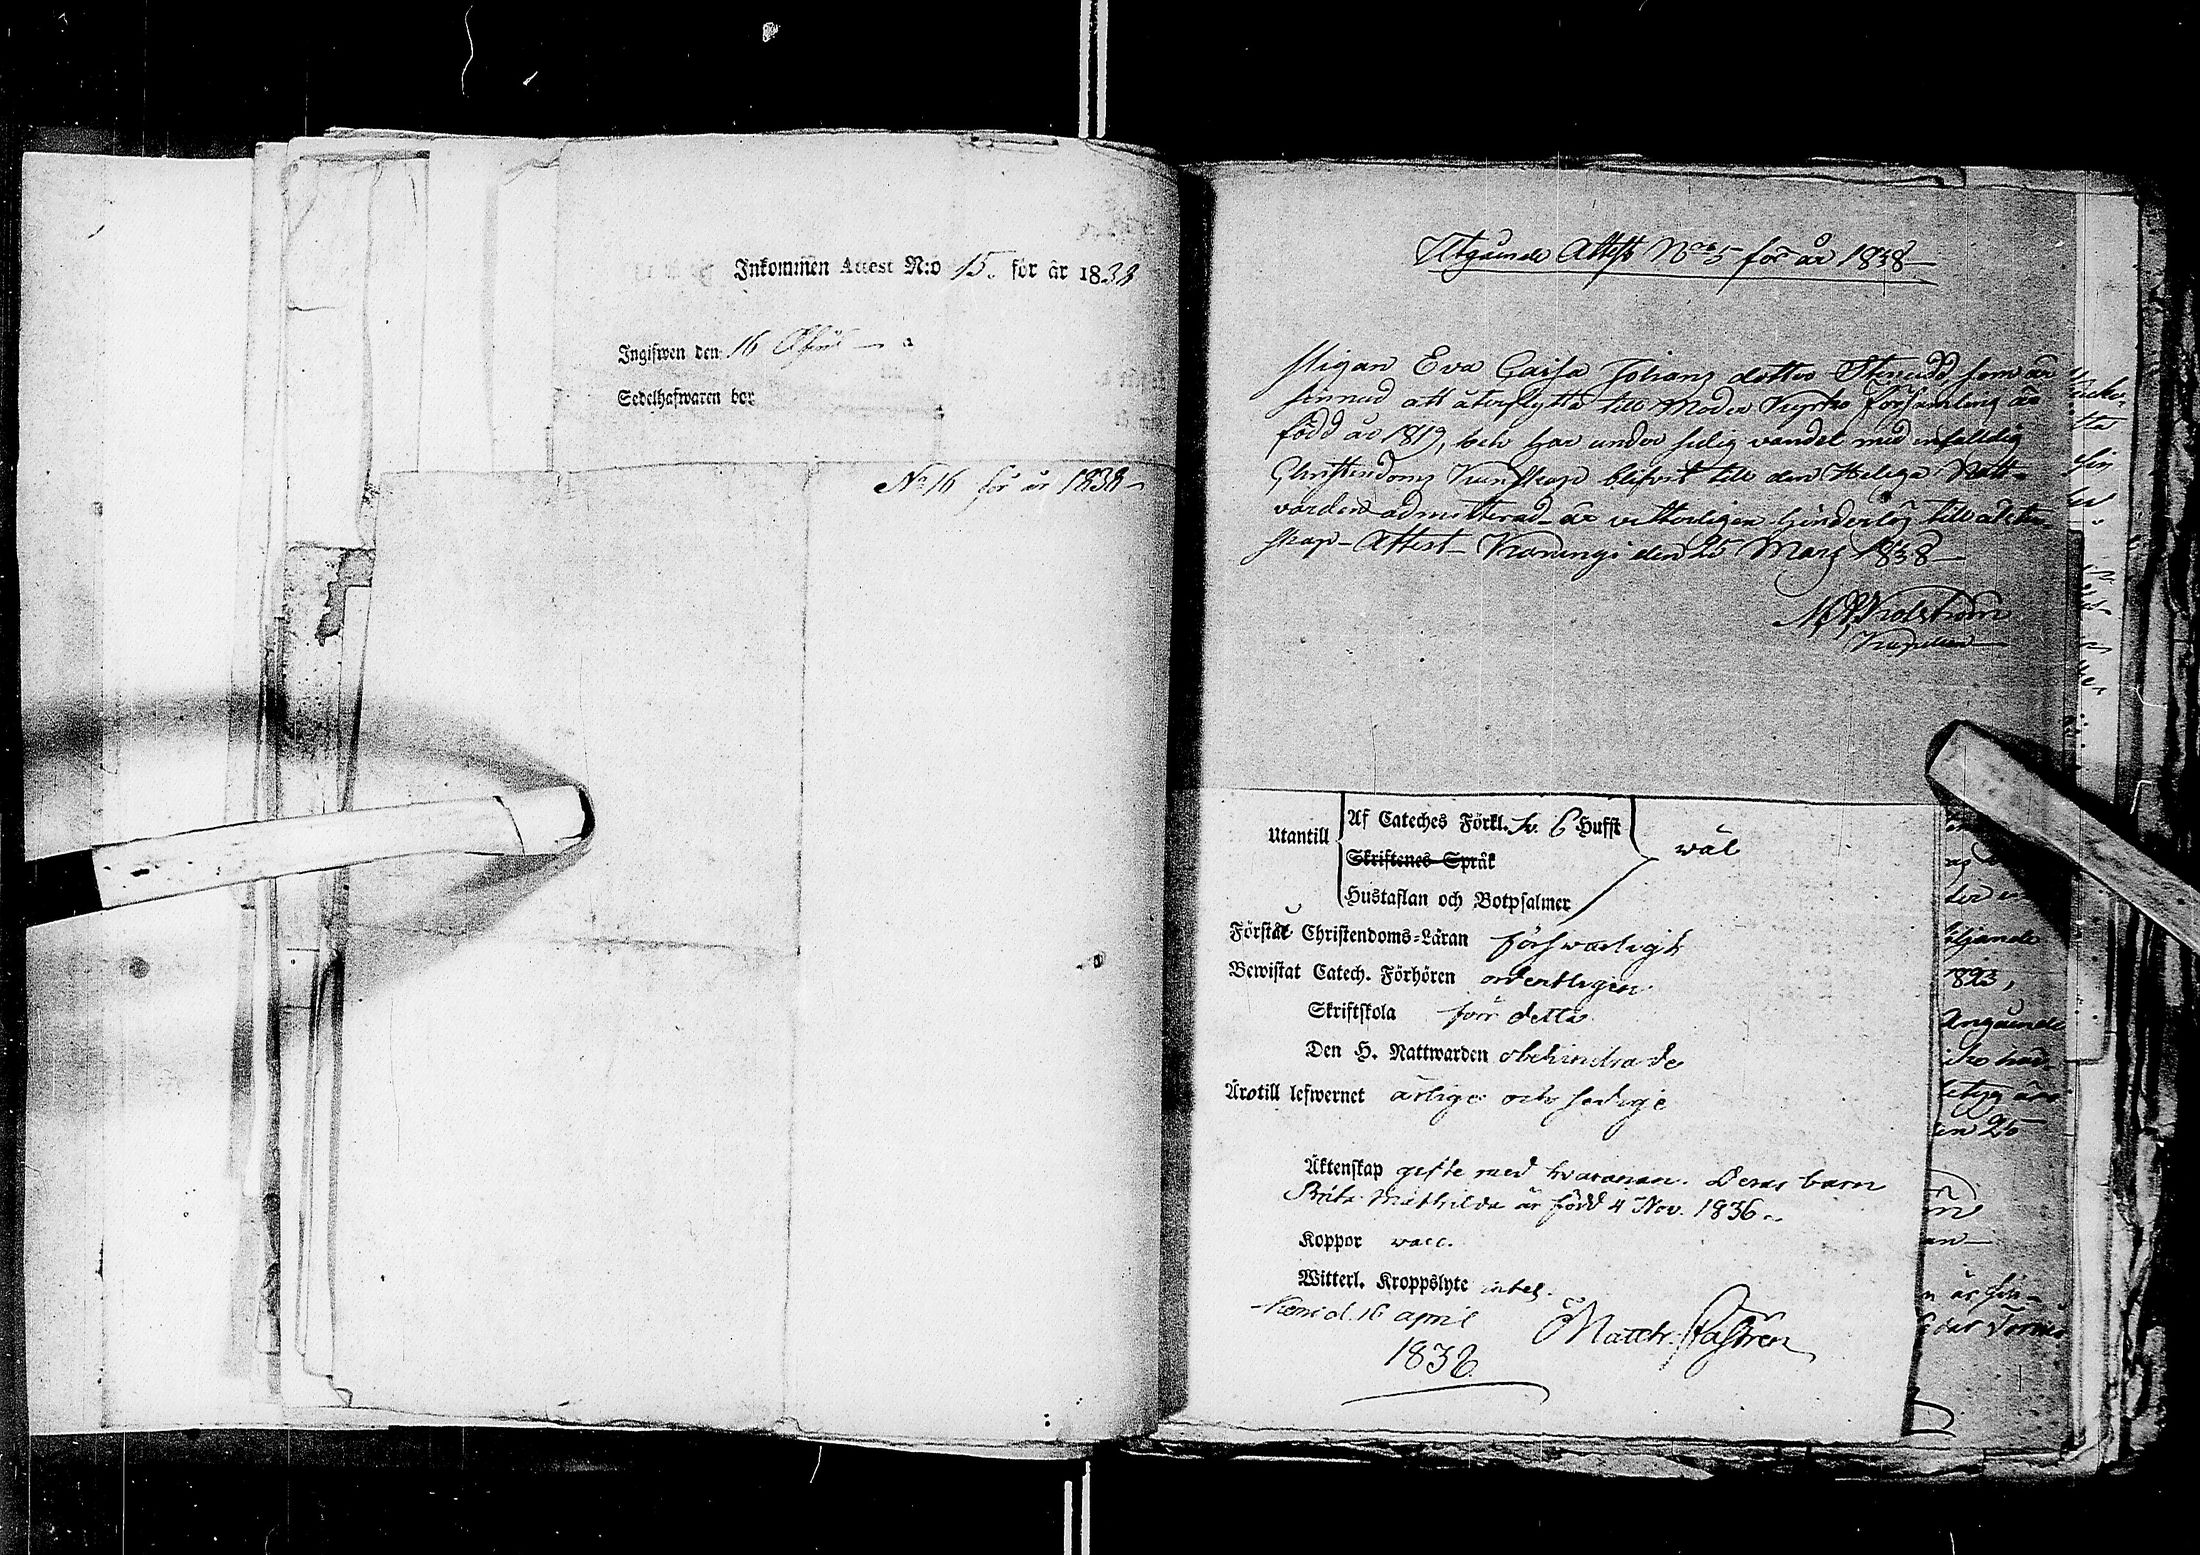 Inkommen Attest N:o 15. för år 1838
Ingifwen den 16 April
Sedelhafwaren bor
No 16 för år 1838
Utgående Attest No 5 för år 1838
Pigan Eva Caisa Johans dotter Stenudd som är
sinnad att återflytta till Moder Kyrko församling är
född år 1819, och har under sedig vandel med enfalldig
Christendoms Kunskap blifvit till den Heliga Natt-
varden admitterad är vitterligen hinderlös till äkten-
skap. Attest Karungi den 25 Mars 1838
Kapellan
Utantill
Af Cateches Förkl. 6 Hufst
Skriftenes Språk
Hustaflan och Botpsalmer
wäl
Förstå Christendoms-Läran förswarligit
Bewistat Catech. Förhören ordentligen
Skriftskola förr detta
Den H. Nattwarden obehindrade
Äro till lefwernet ärlige och sedige
Äktenskap gifte med hvarannan. Deras barn
Brita Mathilda är född 4 Nov. 1836.
Koppor vacc.
Witterl. Kroppslyte intet.
Kemi d. 16 april
Matth. Castrén
1838
1823,
Angående
en 25